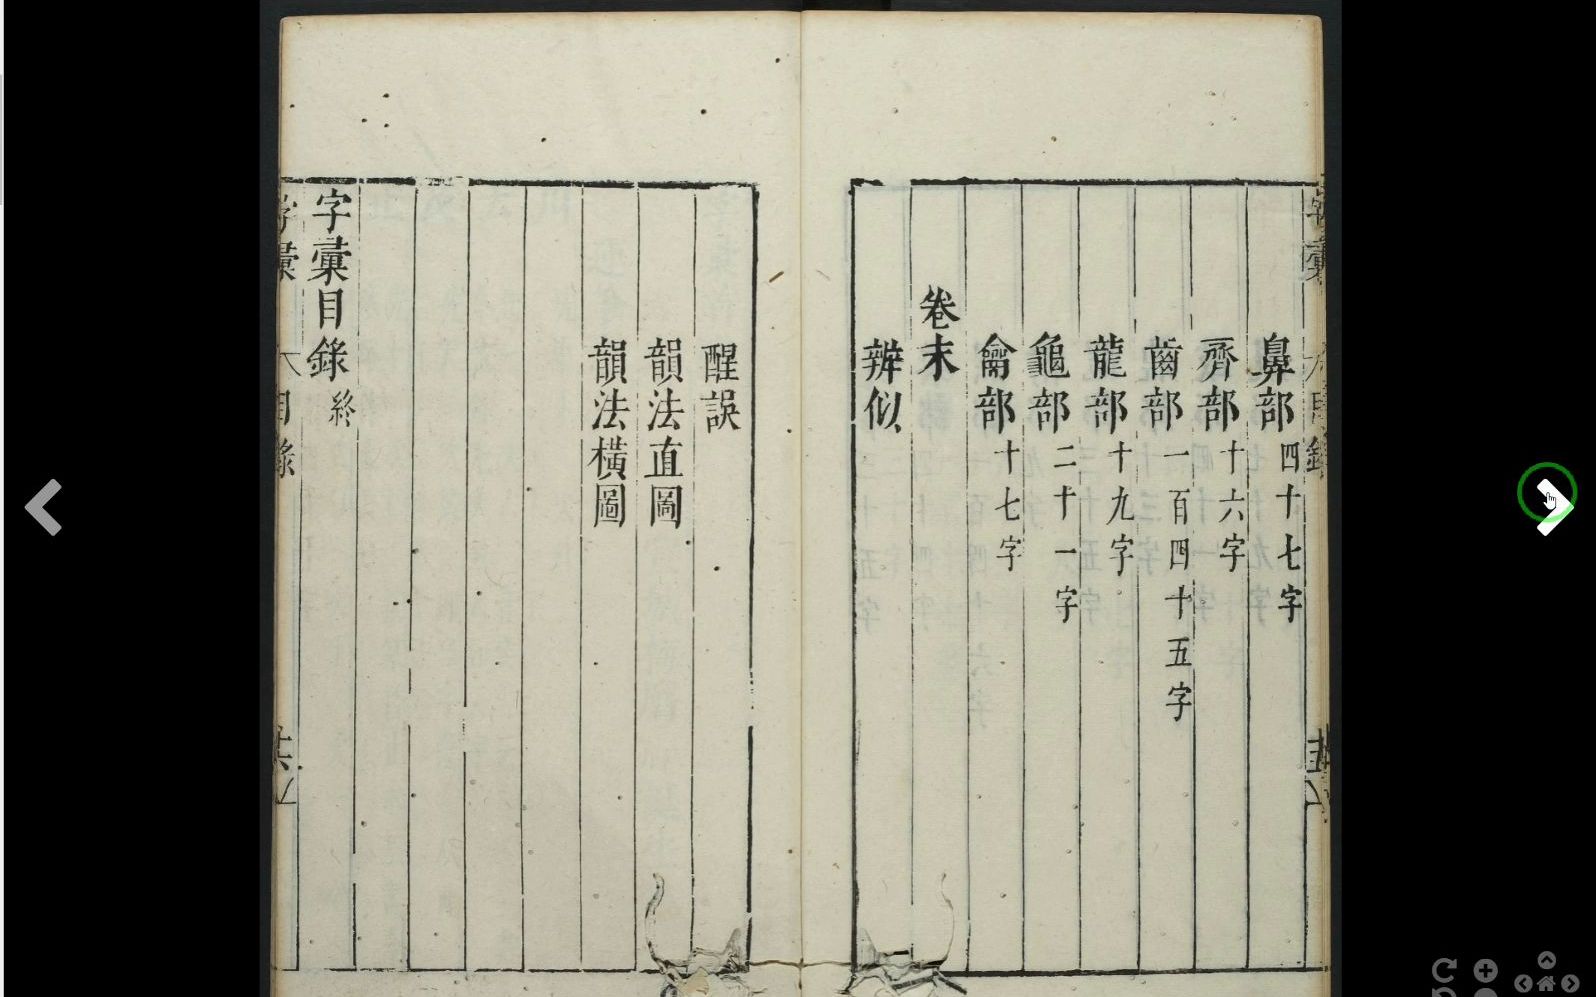 鼻部四十七字
齊部十六字
齒部一百四十五字
龍部十九字
龜部二十一字
龠部十七字
卷末
辨似
醒誤
韻法直圖
韻法橫圖
字彙目錄終
字彙
目錄